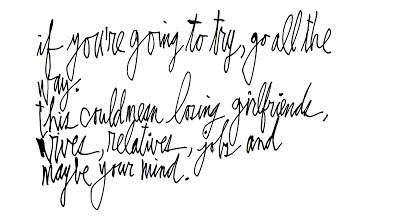 if you're going to try, go all the
way.
this could mean losing girlfriends,
wives, relatives, jobs and
maybe your mind.